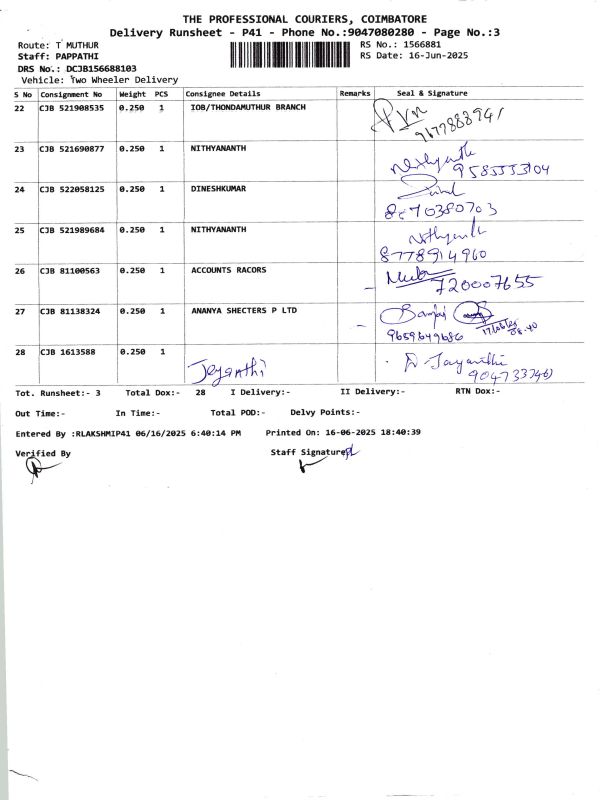 THE PROFESSIONAL COURIERS, COIMBATORE
Delivery Runsheet - P41 - Phone No.:9047080280 - Page No.:3
Route: T MUTHUR
RS No.: 1566881
Staff: PAPPATHI
RS Date: 16-Jun-2025
DRS No.: DCJB156688103
Vehicle: Two Wheeler Delivery
S No Consignment No Weight PCS Consignee Details Remarks Seal & Signature
22 CJB 521908535 0.250 1 IOB/THONDAMUTHUR BRANCH
23 CJB 521690877 0.250 1 NITHYANANTH Nithyanth
9585553104
24 CJB 522058125 0.250 1 DINESHKUMAR
8870380703
25 CJB 521989684 0.250 1 NITHYANANTH Nithyanth
8778914960
26 CJB 81100563 0.250 1 ACCOUNTS RACORS
720007655
27 CJB 81138324 0.250 1 ANANYA SHECTERS P LTD
9659649686
28 CJB 1613588 0.250 1 Jeyanthi D. Jayanthi
Tot. Runsheet:- 3 Total Dox:- 28 I Delivery:- II Delivery:- RTN Dox:-
Out Time:- In Time:- Total POD:- Delvy Points:-
Entered By :RLAKSHMIP41 06/16/2025 6:40:14 PM Printed On: 16-06-2025 18:40:39
Verified By Staff Signature